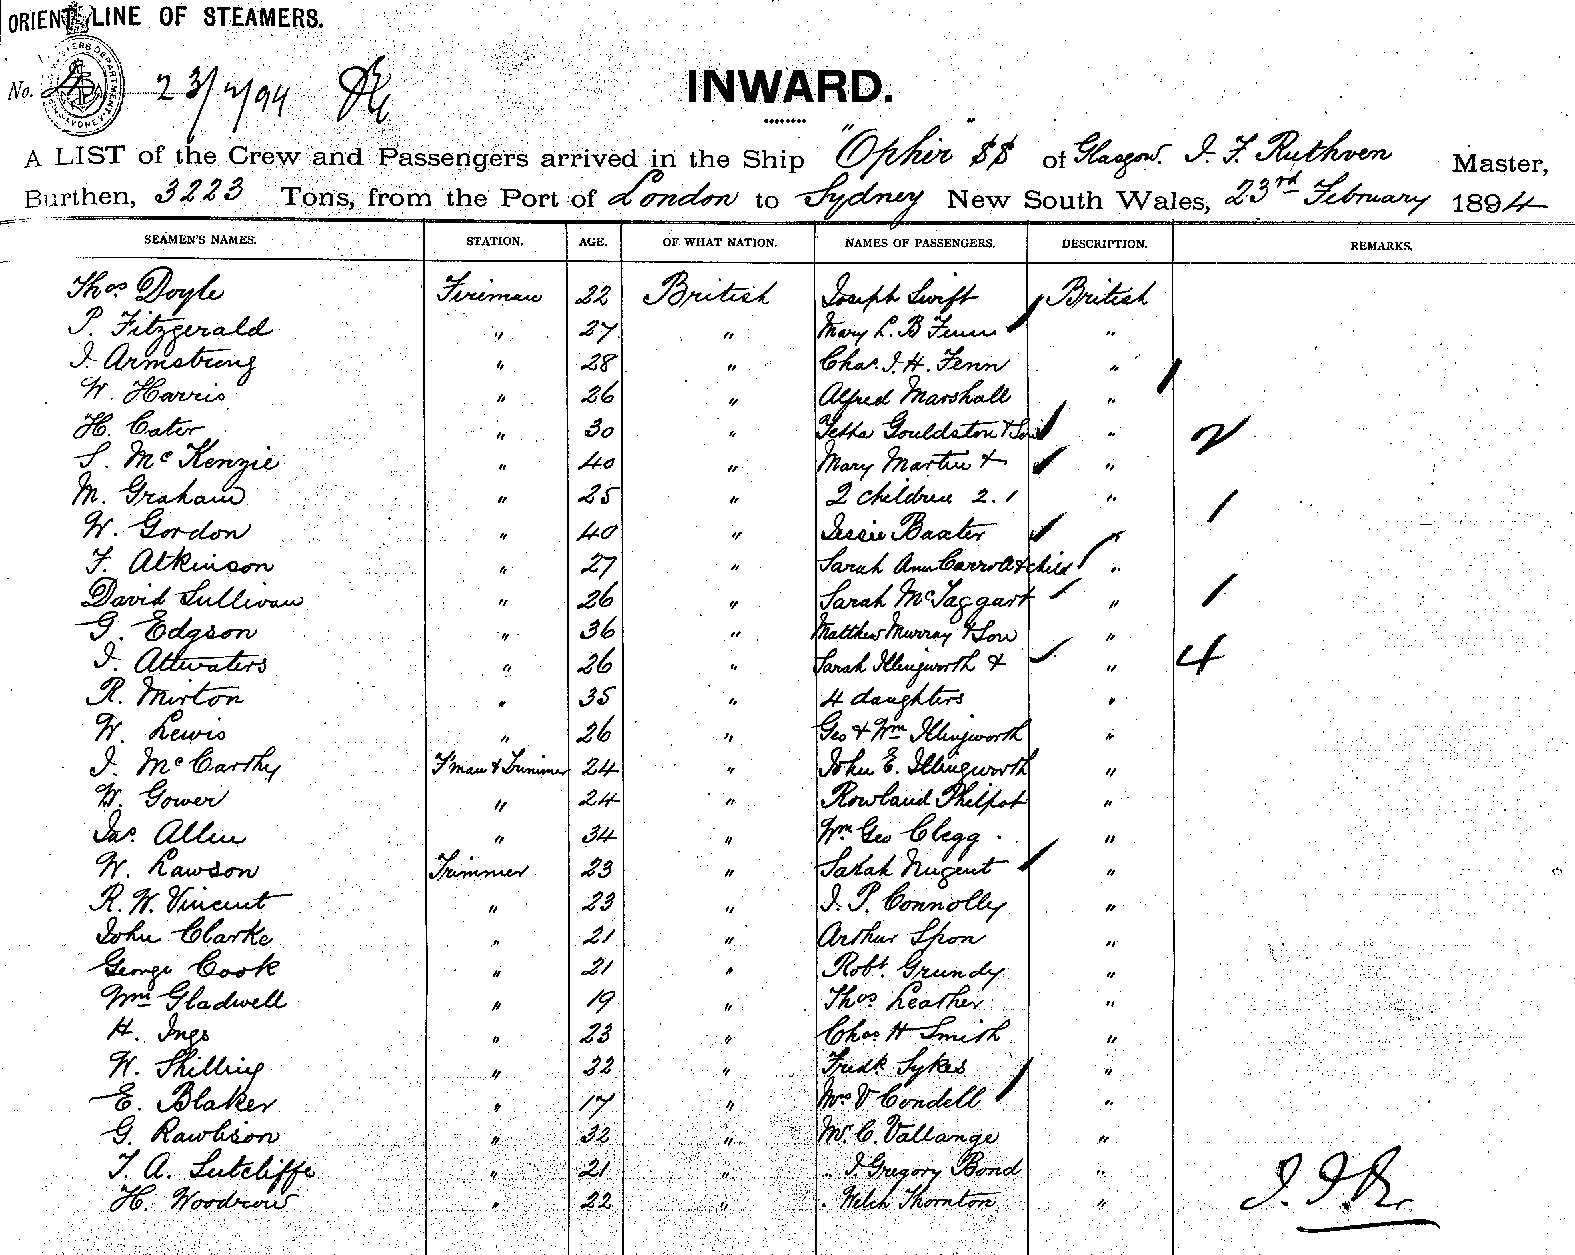 ORIENT LINE OF STEAMERS.
No. 23/2/94
INWARD.
A LIST of the Crew and Passengers arrived in the Ship "Ophir" SS of Glasgow. J. F. Ruthven Master,
Burthen, 3223 Tons, from the Port of London to Sydney New South Wales, 23rd February 1894
SEAMEN'S NAMES. STATION. AGE. OF WHAT NATION. NAMES OF PASSENGERS. DESCRIPTION. REMARKS.
Thos Doyle Fireman 22 British Joseph Swift British
P. Fitzgerald " 27 " Mary L. B Fenn "
J. Armstrong " 28 " Chas. J. H. Fenn " 1
W. Harris " 26 " Alfred Marshall "
H. Cater " 30 " Gouldston & Son " 2
S. McKenzie " 40 " Mary Martin & "
M. Graham " 25 " 2 children 2. 1 " 1
W. Gordon " 40 " Jessie Baxter "
F. Atkinson " 27 " Sarah Ann Carroll & child "
David Sullivan " 26 " Sarah McTaggart " 1
G. Edgson " 36 " Matthew Murray & Son "
J. Attwaters " 26 " Sarah Illingworth & " 4
R. Mirton " 35 " 4 daughters "
W. Lewis " 26 " Geo & Wm Illingworth "
J. McCarthy F'man & Trimmer 24 " John E. Illingworth "
W. Gower " 24 " Rowland Philpot "
Jas. Allen " 34 " Wm Geo Clegg "
W. Lawson Trimmer 23 " Sarah Nugent "
R. W. Vincent " 23 " J. P. Connolly "
John Clarke " 21 " Arthur Spon "
George Cook " 21 " Robt. Grundy "
Wm Gladwell " 19 " Thos Leather "
H. Ings " 23 " Chas H Smith "
W. Shilling " 32 " Fredk Sykes "
E. Blaker " 17 " Mrs V Condell "
G. Rawlison " 32 " Mr. C. Vallange "
T. A. Sutcliffe " 21 " " J. Gregory Bond "
H. Woodrow " 22 " " Welch Thornton "
J. F. R.